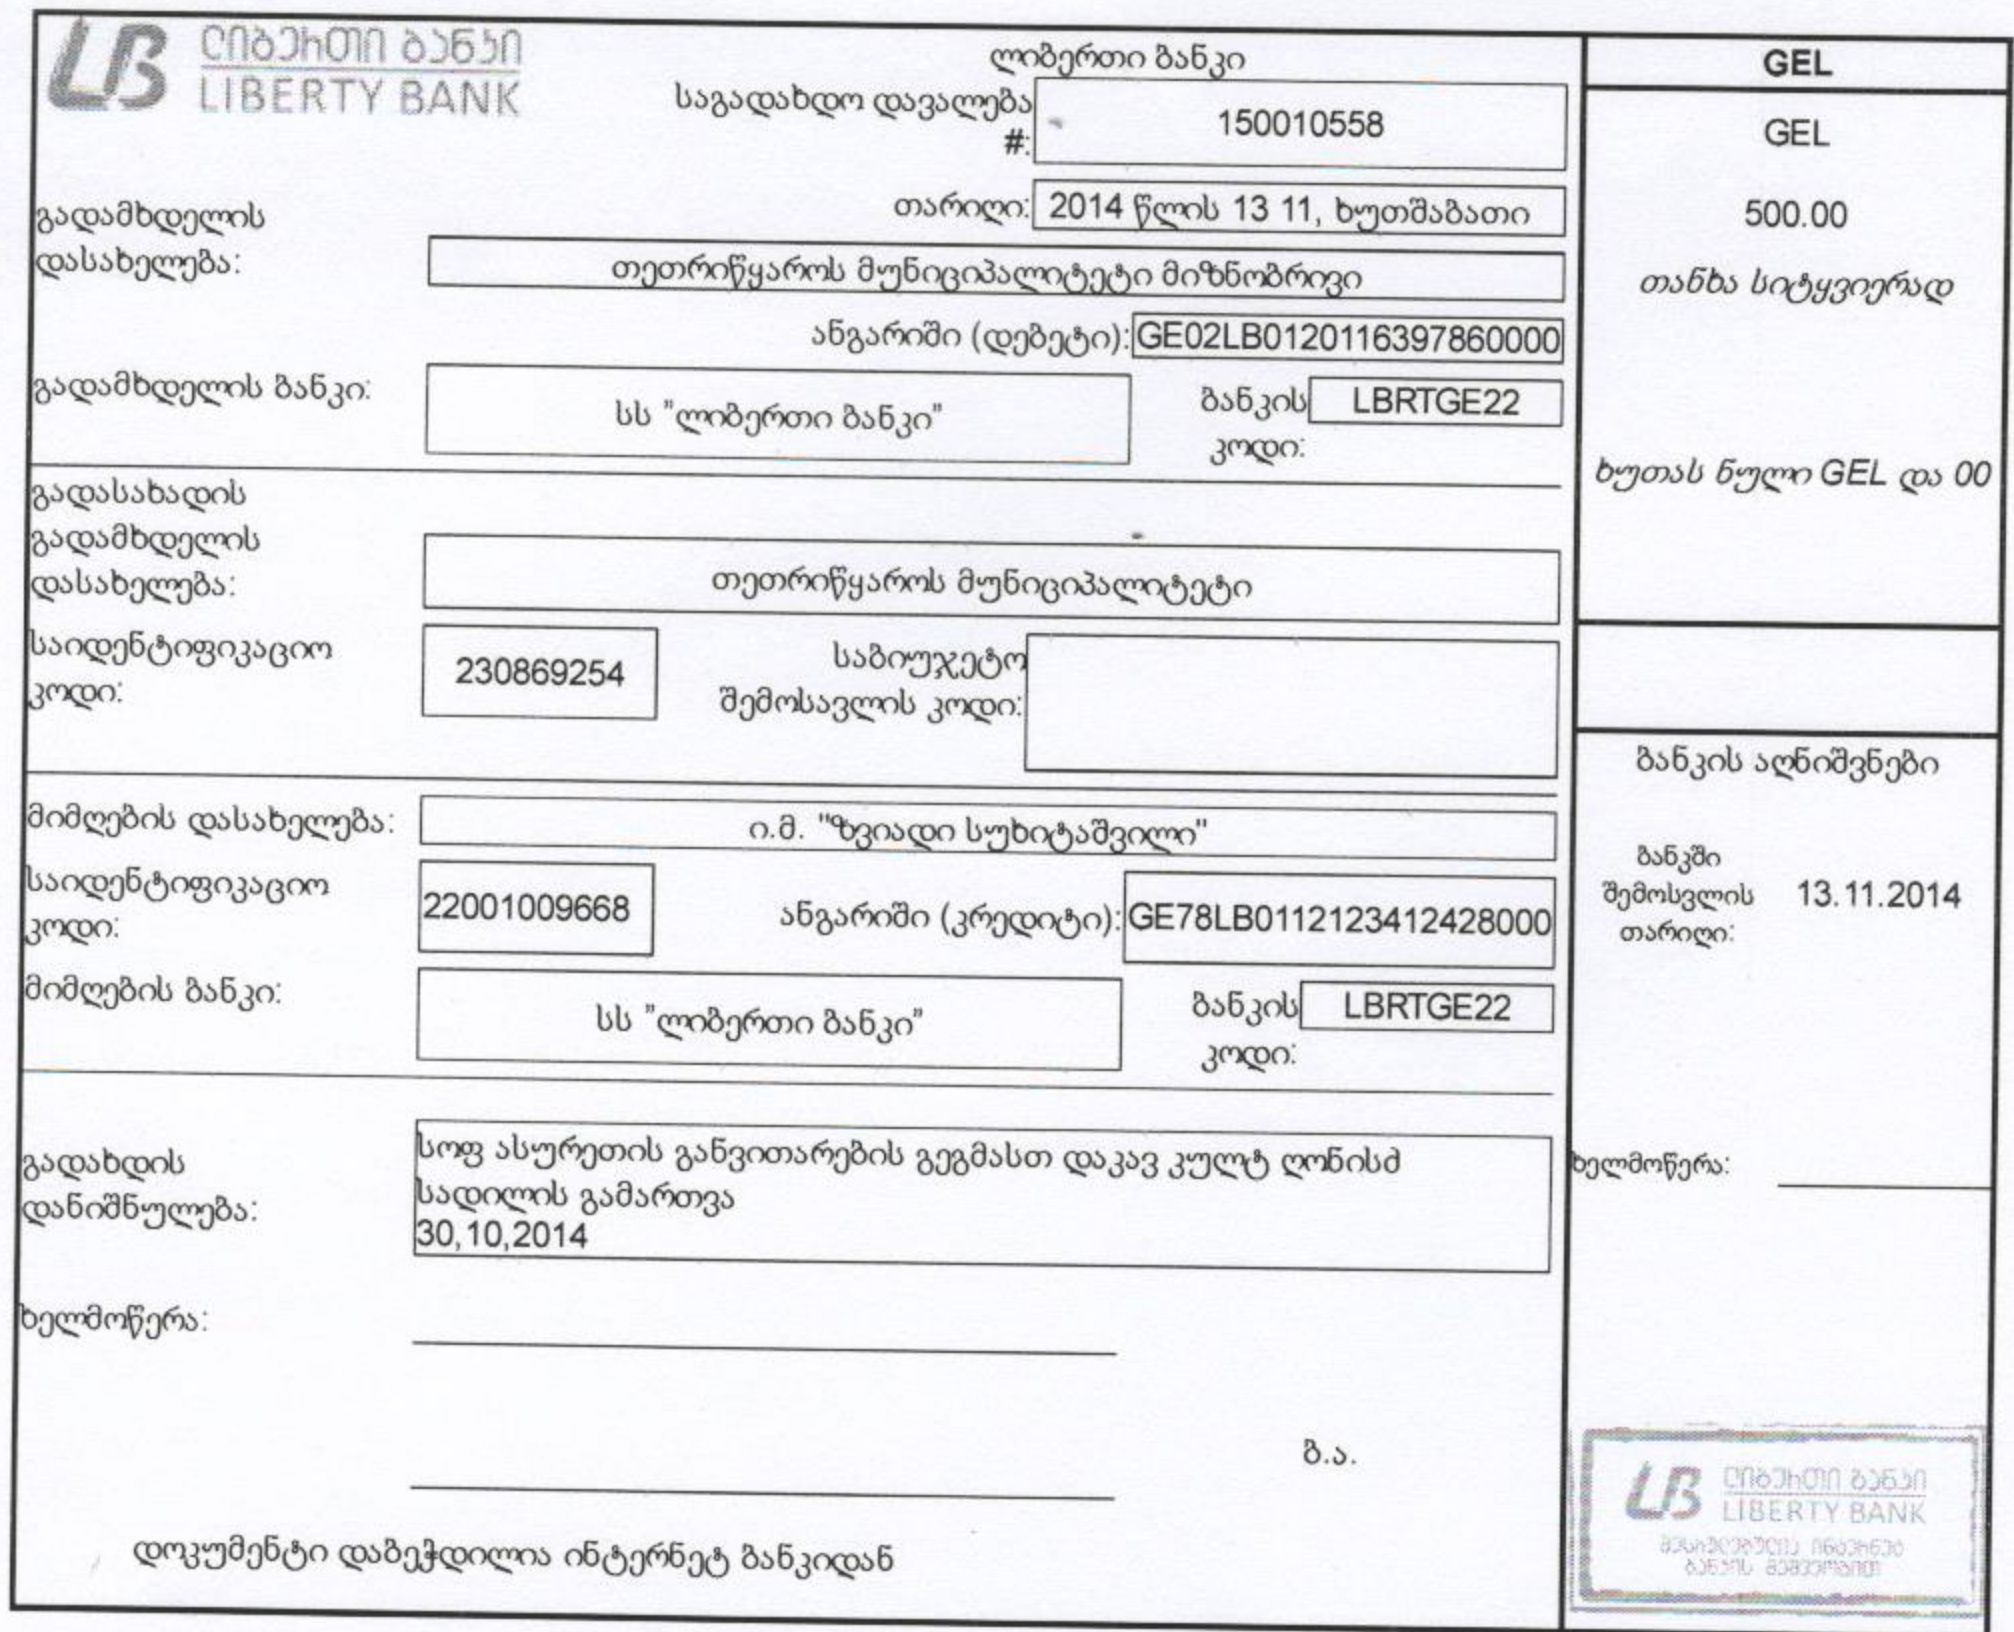 ლიბერთი ბანკი
LIBERTY BANK
ლიბერთი ბანკი
საგადახდო დავალება
#:
150010558
თარიღი:
2014 წლის 13 11, ხუთშაბათი
გადამხდელის
დასახელება:
თეთრიწყაროს მუნიციპალიტეტი მიზნობრივი
ანგარიში (დებეტი):
GE02LB0120116397860000
გადამხდელის ბანკი:
სს "ლიბერთი ბანკი"
ბანკის
კოდი:
LBRTGE22
გადასახადის
გადამხდელის
დასახელება:
თეთრიწყაროს მუნიციპალიტეტი
საიდენტიფიკაციო
კოდი:
230869254
საბიუჯეტო
შემოსავლის კოდი:
მიმღების დასახელება:
ი.მ. "ზვიადი სუხიტაშვილი"
საიდენტიფიკაციო
კოდი:
22001009668
ანგარიში (კრედიტი):
GE78LB0112123412428000
მიმღების ბანკი:
სს "ლიბერთი ბანკი"
ბანკის
კოდი:
LBRTGE22
გადახდის
დანიშნულება:
სოფ ასურეთის განვითარების გეგმასთ დაკავ კულტ ღონისძ
სადილის გამართვა
30,10,2014
ხელმოწერა:
ბ.ა.
დოკუმენტი დაბეჭდილია ინტერნეტ ბანკიდან
GEL
GEL
500.00
თანხა სიტყვიერად
ხუთას ნული GEL და 00
ბანკის აღნიშვნები
ბანკში
შემოსვლის
თარიღი:
13.11.2014
ხელმოწერა:
ლიბერთი ბანკი
LIBERTY BANK
შესრულებულია ინტერნეტ
ბანკის მეშვეობით